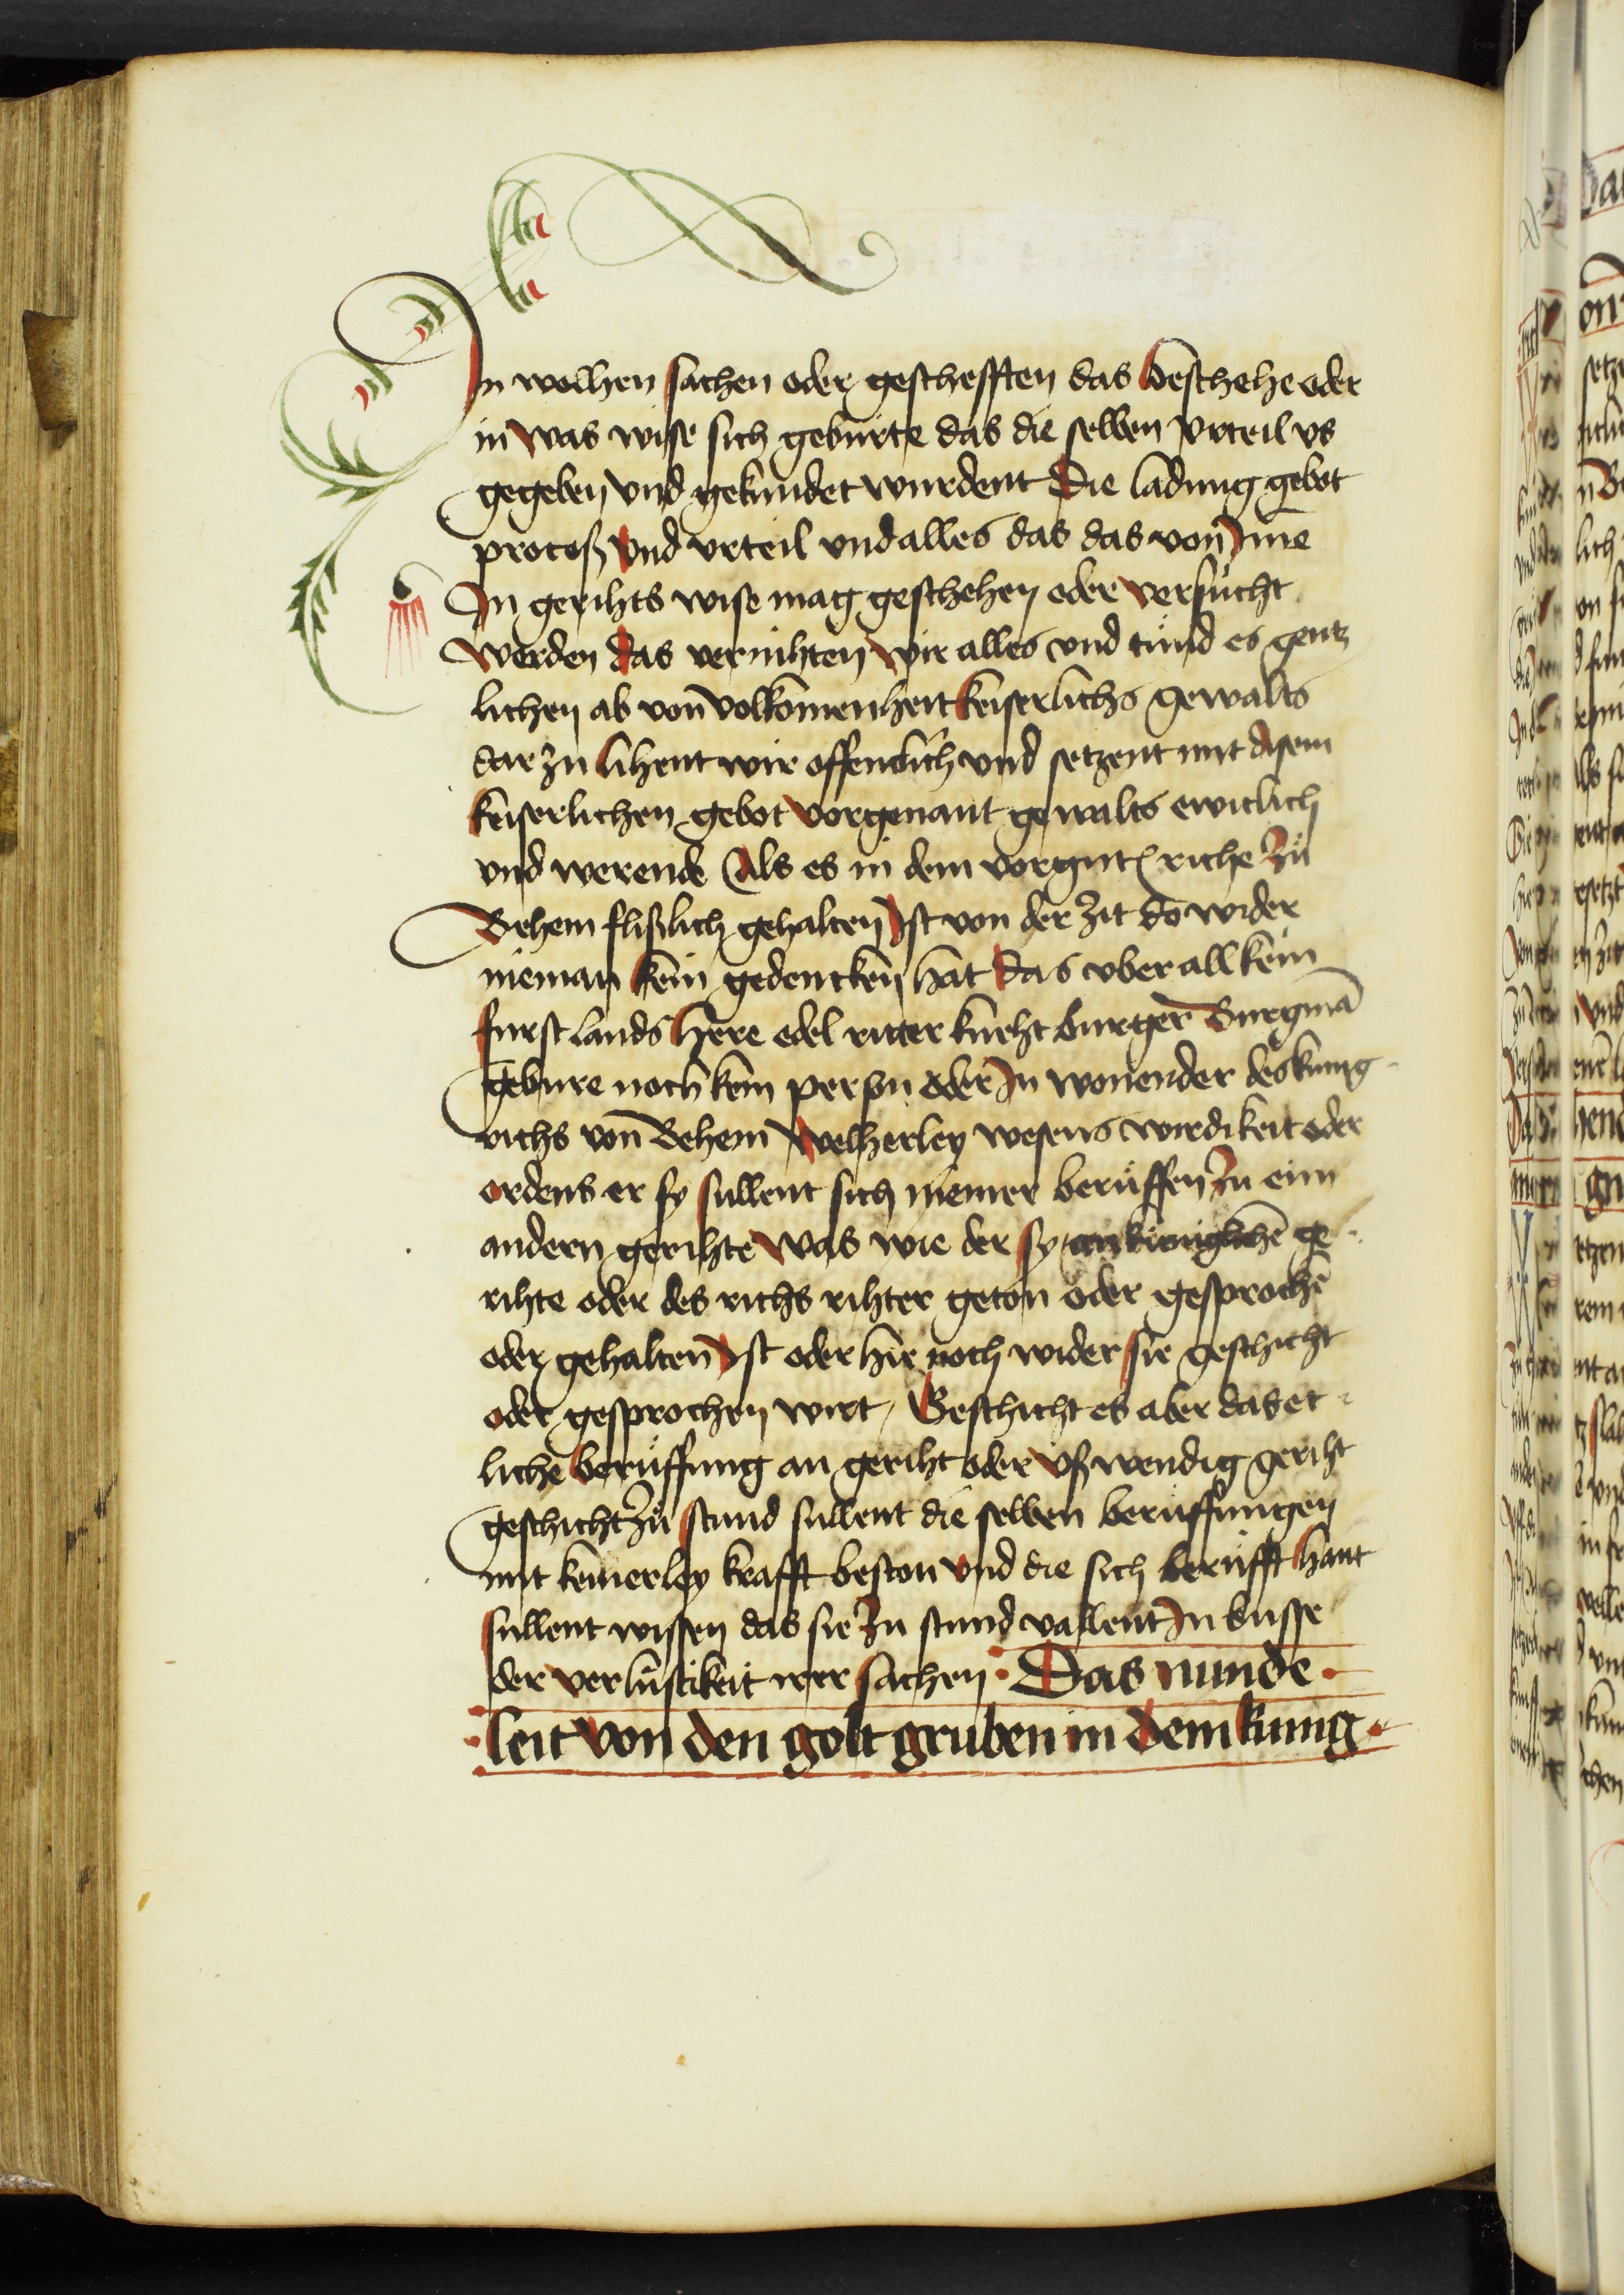 In welhen sachen oder geschefften das beschehe oder
in was wise sich geburte das die selben vrteil vs
gegeben vnd gekundet wurdent Die ladung gebot
proceß vnd vrteil vnd alles das das von Ime
In gerihts wise mag geschehen oder versucht
werden das vernihten wir alles vnd tund es gentz
lichen ab von volkomenheit keiserlichs gewalts
dar zu lihent wir offenlich vnd setzent mit disem
keiserlichen gebot vorgenant gewalts ewiclich
vnd werende Als es in dem vorgnt riche zů
Behem flißlich gehalten Ist von der zit do wider
nieman kein gedencken hat das vber all kein
furst lands here edel ritter kneht burger Burgmā
gebure noch kein person oder In wonender des kunig
richs von Behem welherley wesens wirdikeit oder
ordens er sy sullent sich niemer berůffen zu eim
andern gerihte was wie der sy an kuniglichē ge
rihte oder des richs rihter geton oder gesprochē
oder gehalten Ist oder hie noch wider sie geschicht
oder gesprochen wirt / Geschicht es aber das et
lichē berůffung an geriht oder vßwendig geriht
geschicht zů stund sullent die selben beruffungen
mit keinerley krafft beston vnd die sich berůfft hant
sullent wissen das sie zu stund vallent In busse
der verlustikeit irer sachen Das nunde
leit von den golt gruben in dem kunig